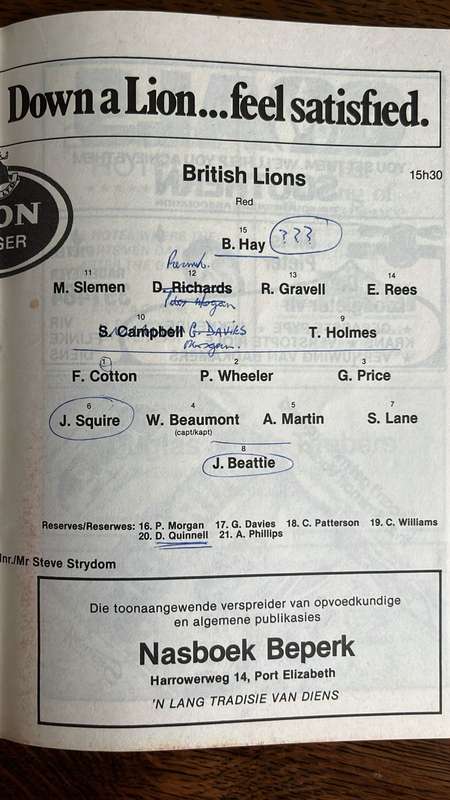 Down a Lion...feel satisfied.
ON
GER
British Lions
15h30
Red
15
B. Hay ???
11 12 13 14
M. Slemen D. Richards R. Gravell E. Rees
10 9
S. Campbell G. DAVIES T. Holmes
Morgan.
1 2 3
F. Cotton P. Wheeler G. Price
6 4 5 7
J. Squire W. Beaumont A. Martin S. Lane
(capt/kapt)
8
J. Beattie
Reserves/Reserwes: 16. P. Morgan 17. G. Davies 18. C. Patterson 19. C. Williams
20. D. Quinnell 21. A. Phillips
nr./Mr Steve Strydom
Die toonaangewende verspreider van opvoedkundige
en algemene publikasies
Nasboek Beperk
Harrowerweg 14, Port Elizabeth
'N LANG TRADISIE VAN DIENS